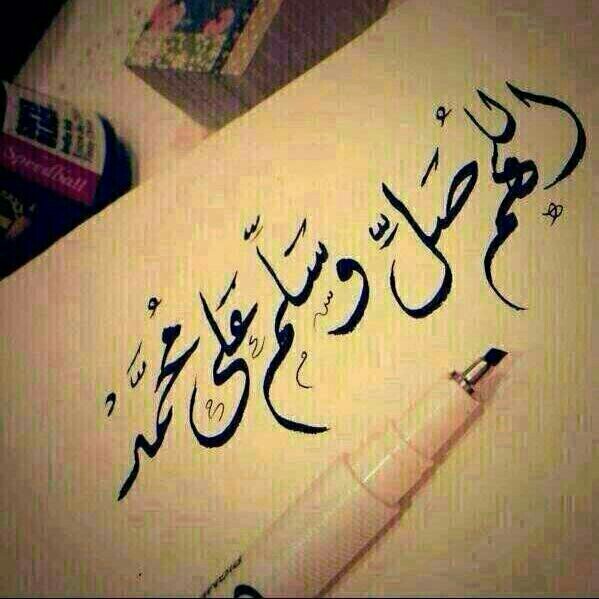 اللهم صَُلِّ وسَلِّم عَلى مُحمَّدْ
Speedball